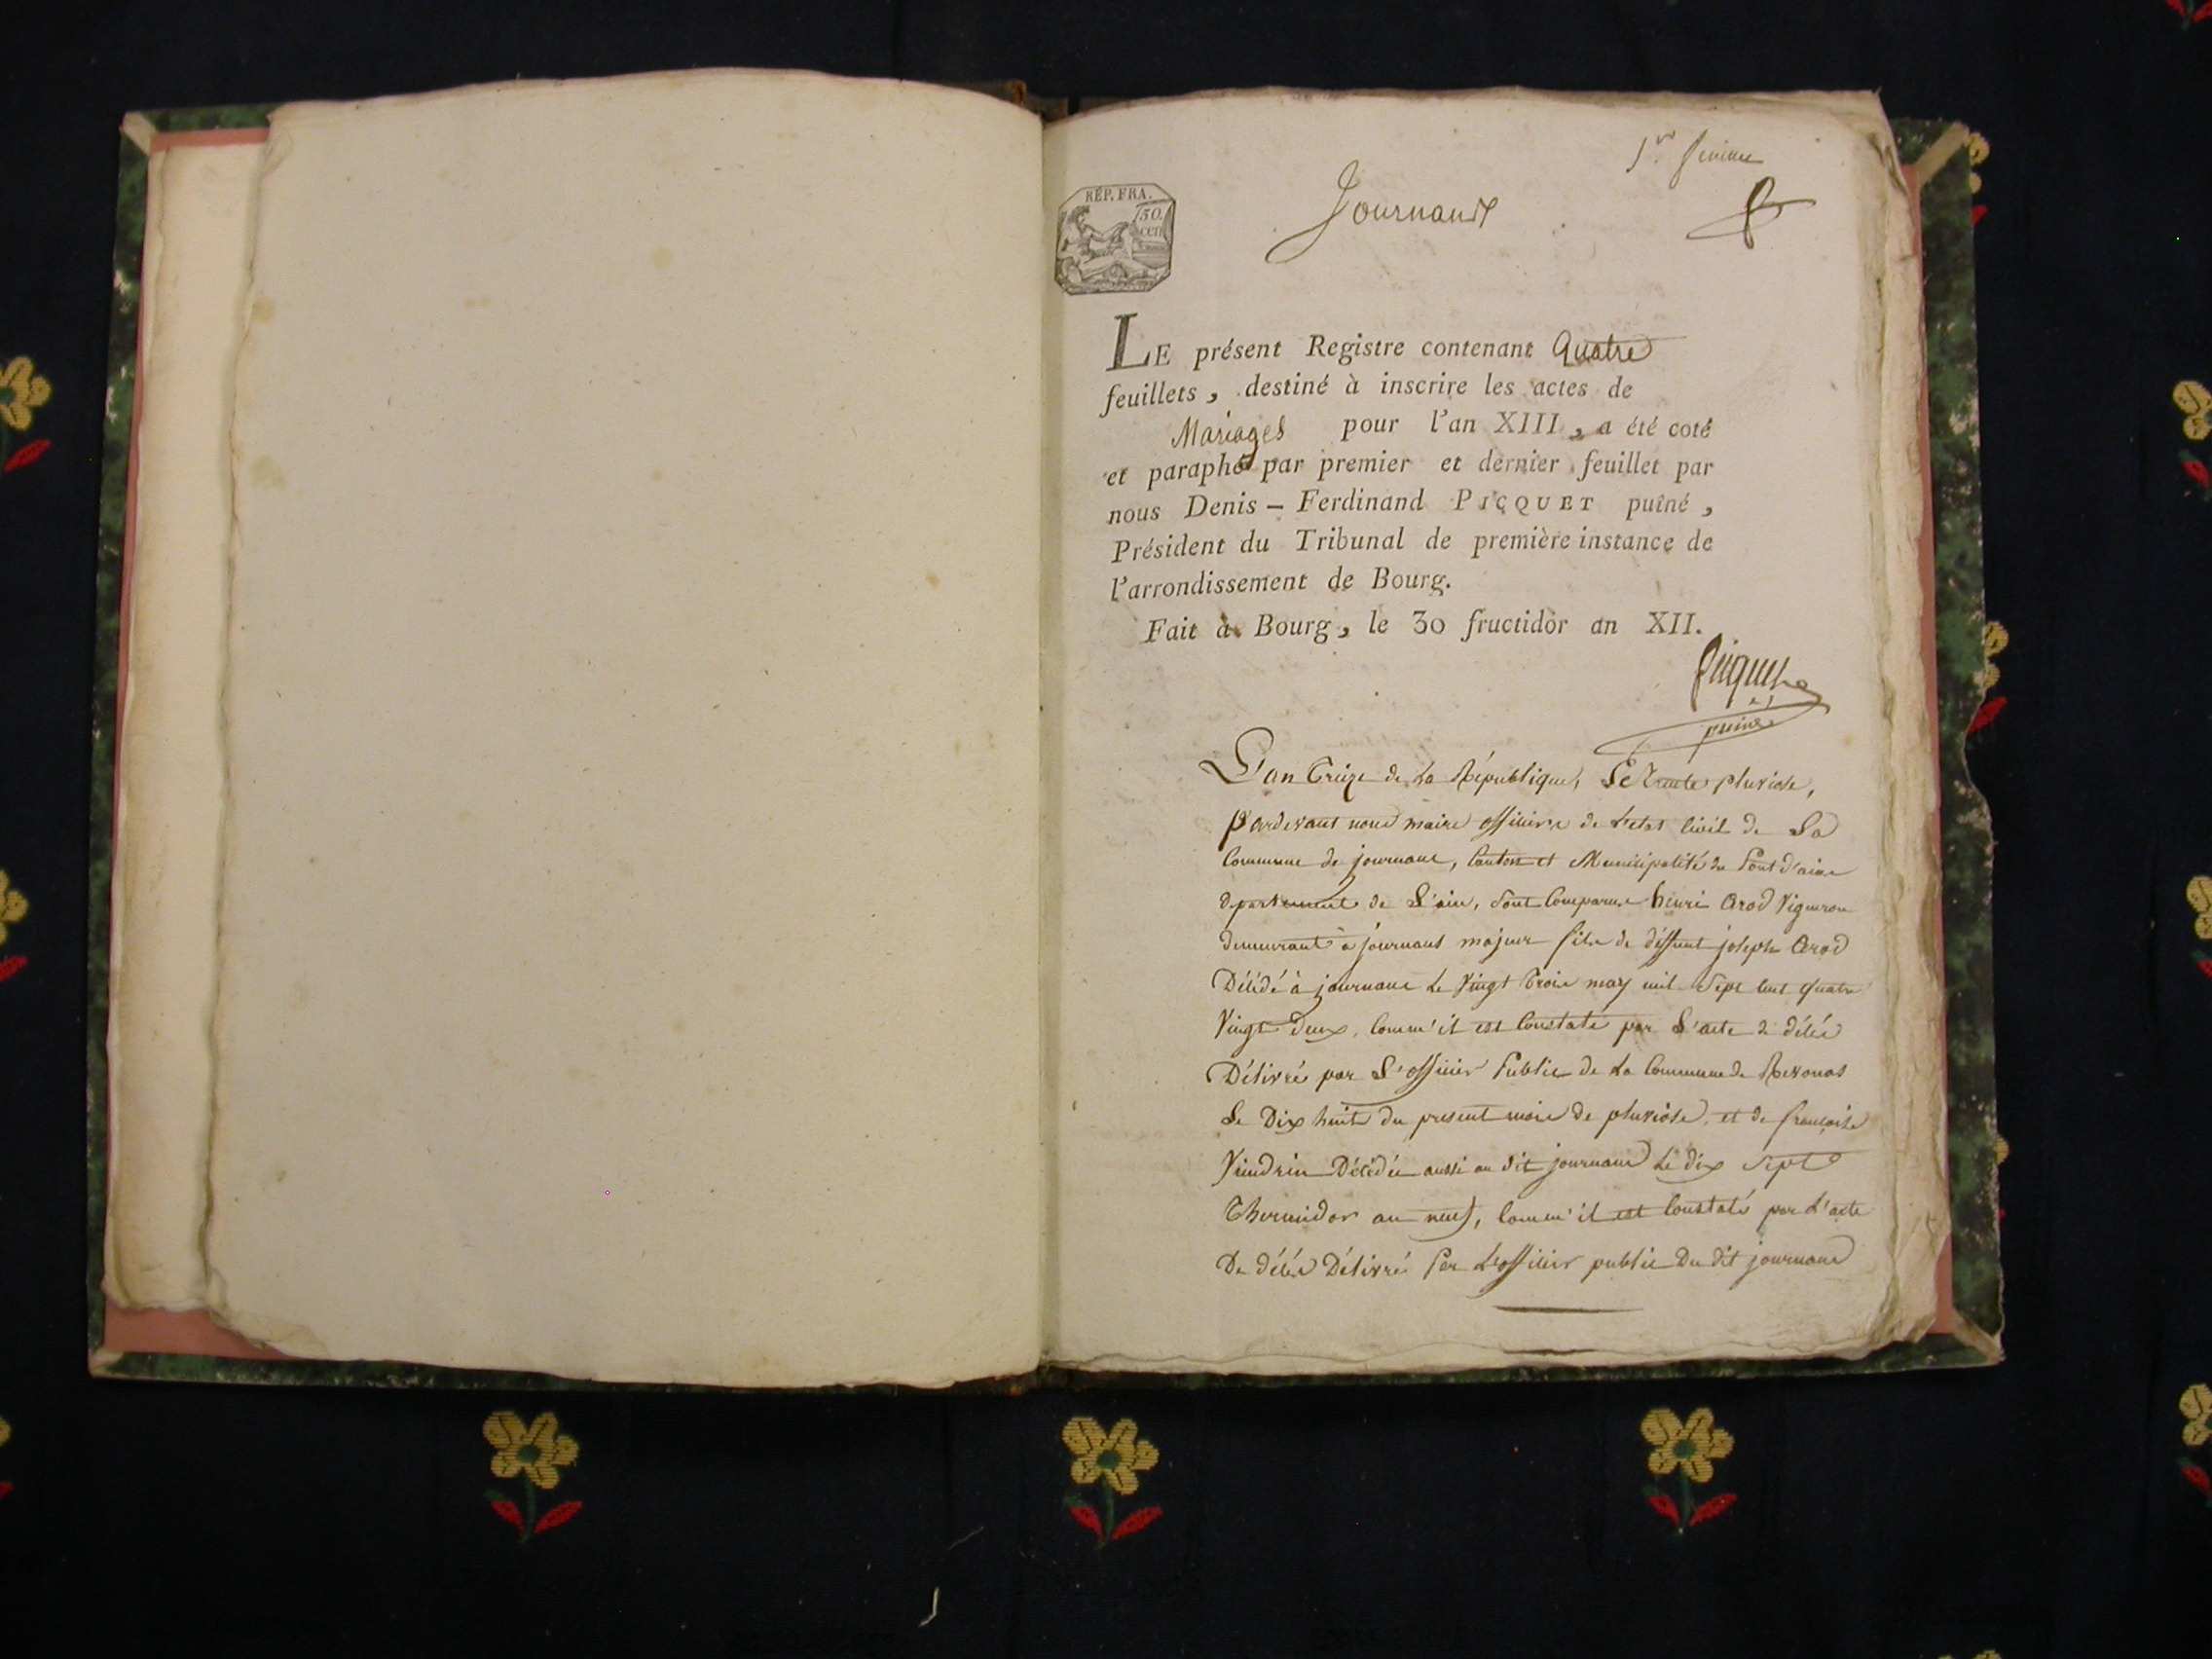 1er feuillet
Journans
RÉP. FRA.
50.
cen
LE présent Registre contenant Quatre
feuillets, destiné à inscrire les actes de
Mariages pour l'an XIII, a été coté
et paraphé par premier et dernier feuillet par
nous Denis – Ferdinand PICQUET puîné,
Président du Tribunal de première instance de
l'arrondissement de Bourg.
Fait à Bourg, le 30 fructidor an XII.
Picquet
puiné
L'an treize de La République, Le trente pluviose,
Pardevant nous maire officier de L'etat Civil de La
Commune de journans, Canton et Municipalité du Pont d'ain
departement de L'ain, sont Comparus henri Arod Vigneron
demeurant à journans majeur fils de deffunt joseph Arod
Décédé à journans Le Vingt trois may mil Sept Cent quatre
Vingt Deux, Comm'il est Constaté par L'acte de décès
Délivré par L'officier Public de La Commune de Revonas
Le Dix huit du present mois de pluviose, et de françoise
Décédée aussi au dit journans Le dix Sept
Thermidor an neuf, Comm'il est Constaté par L'acte
De décès Délivré Par L'officier public Du dit journans